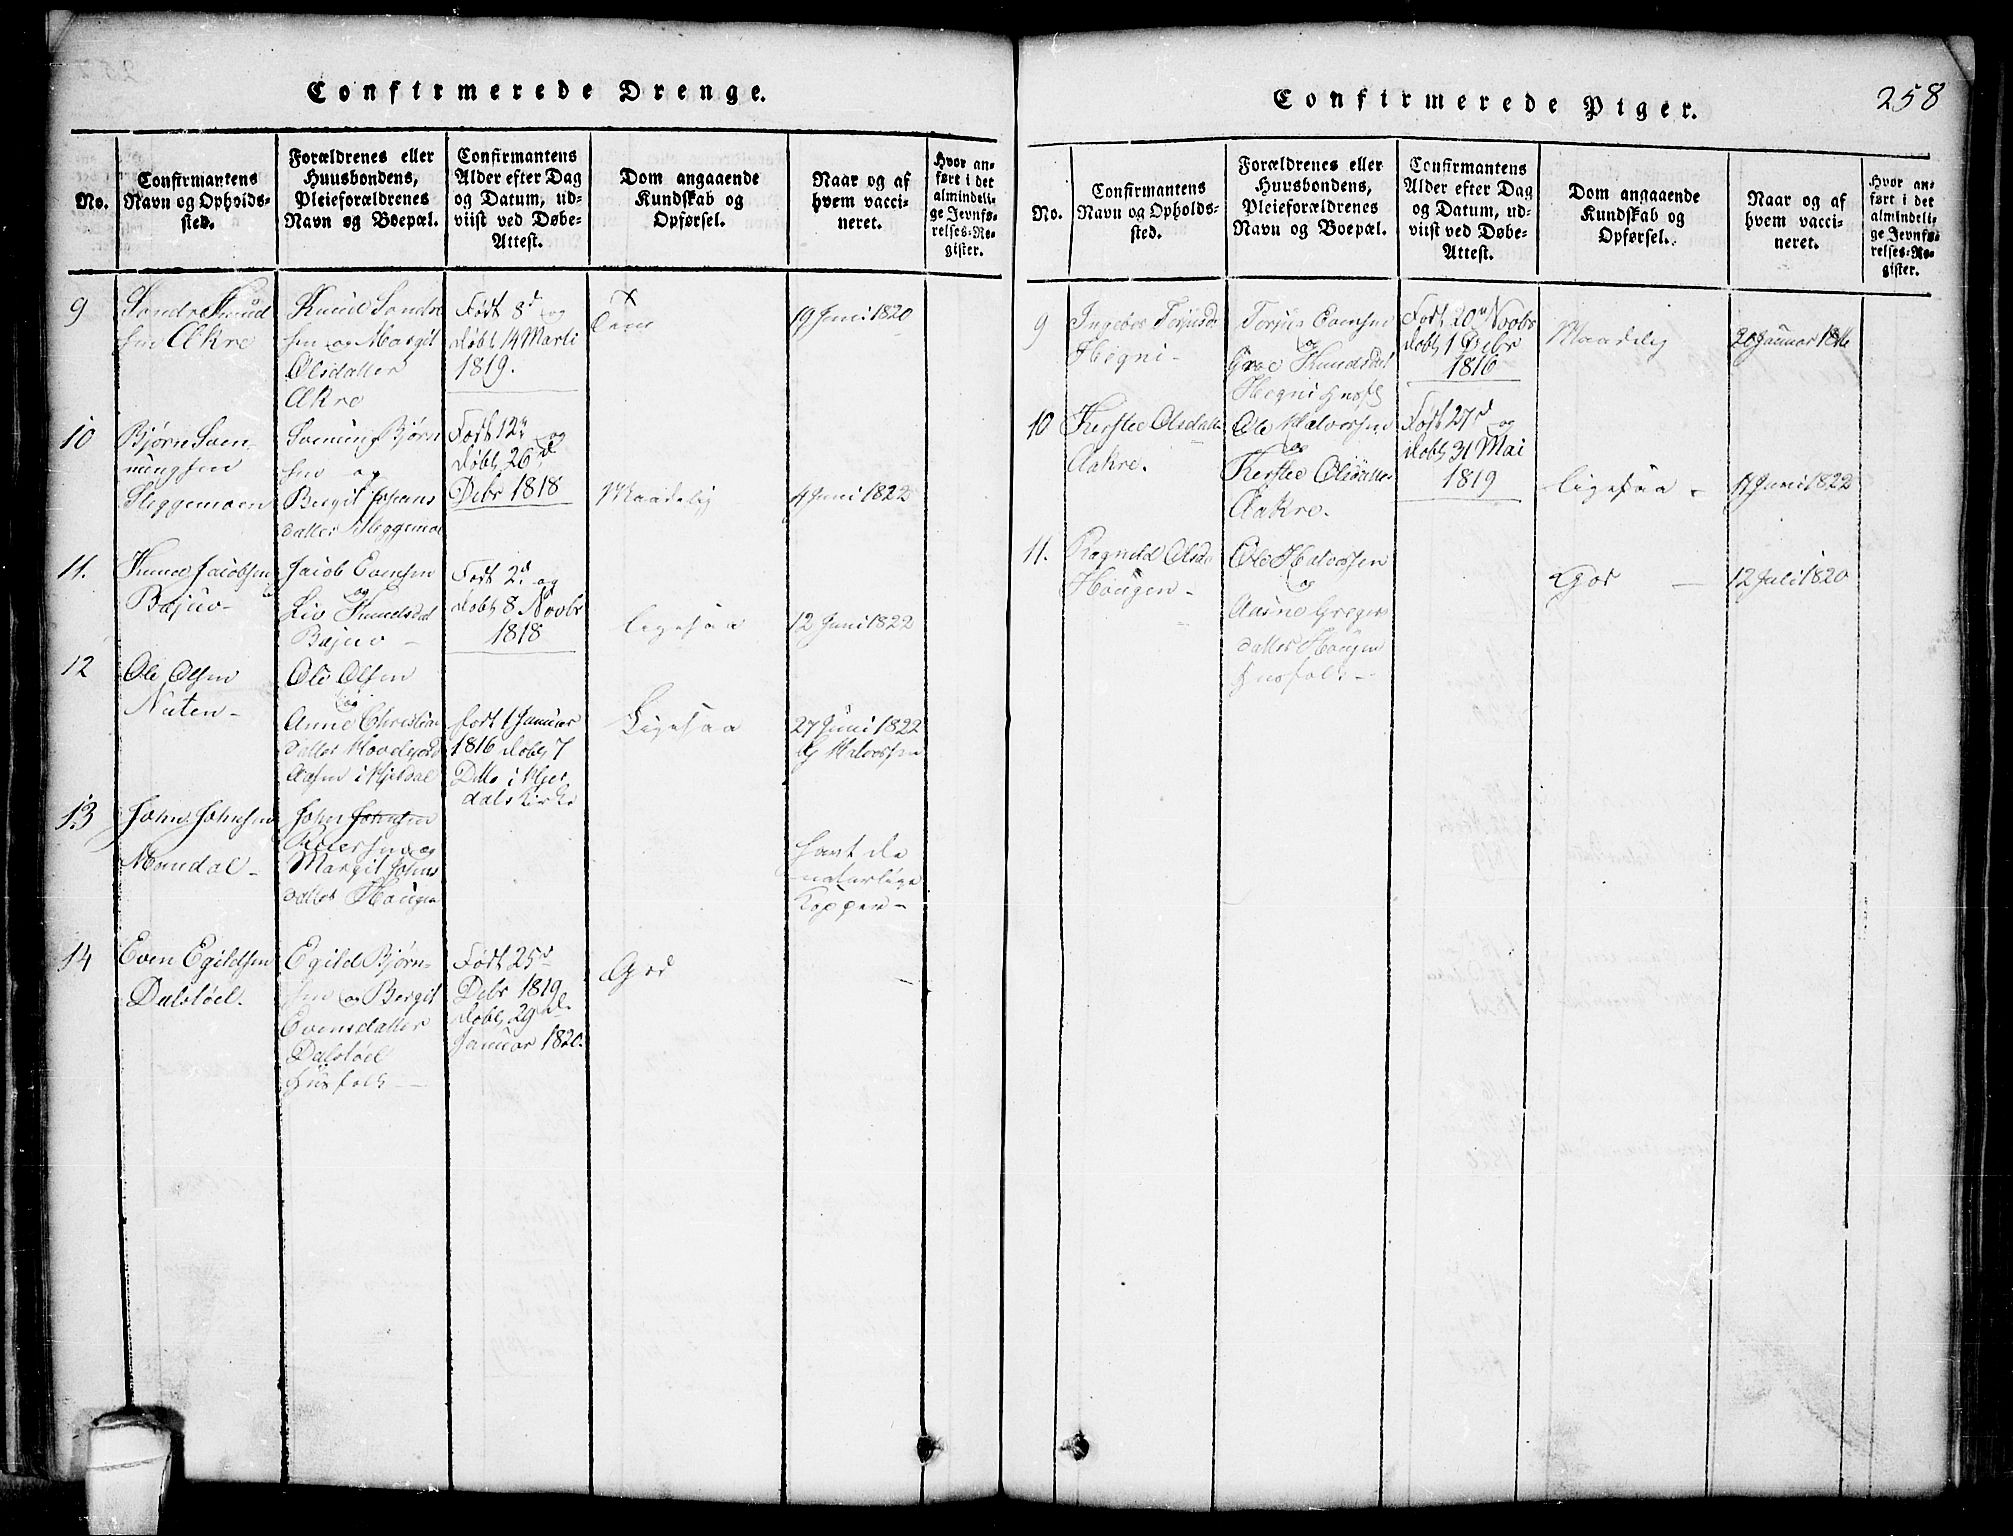 Confirmerede Drenge.
No.
Confirmantens
Navn og Opholds-
sted.
Forældrenes eller
Huusbondens,
Pleieforældrenes
Navn og Boepæl.
Confirmantens
Alder efter Dag
og Datum, ud-
viist ved Døbe-
Attest.
Dom angaaende
Kundskab og
Opførsel.
Naar og af
hvem vacci-
neret.
Hvor an-
ført i det
almindeli-
ge Jevnfø-
relses-Re-
gister.
9
Sondre Knud
sen Akre
Knud Sondre
sen og Margit
Olsdatter
Akre
Født 8d og
døbt 14 Marti
1819.
19 Juni 1820
10
Bjørn Søm-
mungsen
Sleggemoen
Bjørn
sen og
Bergit Johans
datter Sleggemoe
Født 12 og
døbt 26d
Debr 1818
Maadelig
4 Juni 1822
11.
Knud Jacobsen
Bøjuv-
Jacob Evensen
og
Liv Knudsdat
Bøjuv -
Født 2d og
døbt 8 Novbr
1818
ligesaa
12 Juni 1822
12
Ole Olsen
Nuten-
Ole Olsen
og
Anne Christen
datter
Aasen i Hjerdal
født 1 Januar
1816 døbt 7
Dito i Hjer
dals Kirke
Ligesaa
27 Juni 1822
Halvorsen
13
John Johnsen
Mandal-
John Johnsen
Pedersen og
Margit Johns
datter Haugen
havt de
naturlige
Kopper-
14
Even Egildsen
Dalstøel.
Egild Bjørn-
sen og Bergit
Evensdatter
Dalstøel
Husfolk -
Født 25d
Debr 1819
døbt 29d
Januar 1820.
God
Confirmerede Piger.
258
No.
Confirmantens
Navn og Opholds-
sted.
Forældrenes eller
Huusbondens,
Pleieforældrenes
Navn og Boepæl.
Confirmantens
Alder efter Dag
og Datum, ud-
viist ved Døbe-
Attest.
Dom angaaende
Kundskab og
Opførsel.
Naar og af
hvem vacci-
neret.
Hvor an-
ført i det
almindeli-
ge Jevnfø-
relses-Re-
gister.
9
Ingebor Torjusda
Høgni-
Torjus Evensen
og
Groe Knudsdat
Høgni
Født 20 Novbr
døbt 1 Debr
1816
Maadelig
20 Januar
10
Kerstee Olsdatter
Aakre.
Ole Halvorsen
og
Kerstee Olsdatter
Aakre.
Født 27d og
døbt 31 Mai
1819
ligesaa -
11 Juni 1822
11.
Ragnild Olsda
Haugen-
Ole Halvorsen
og
Aasne Gregers
datter Haugen
Husfolk -
God -
12 Juli 1820